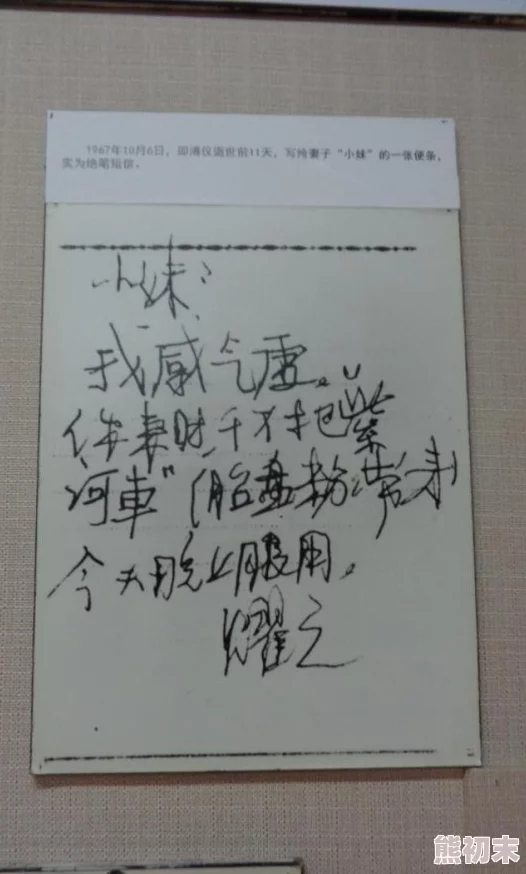 1967年10月6日，即溥仪逝世前11天，写给妻子“小妹”的一张便条，
实为绝笔短信。
小妹：
我感气虚。
你来时，千万把“紫
河車”（胎盘粉）带来，
今天晚上服用。
耀之
熊初末